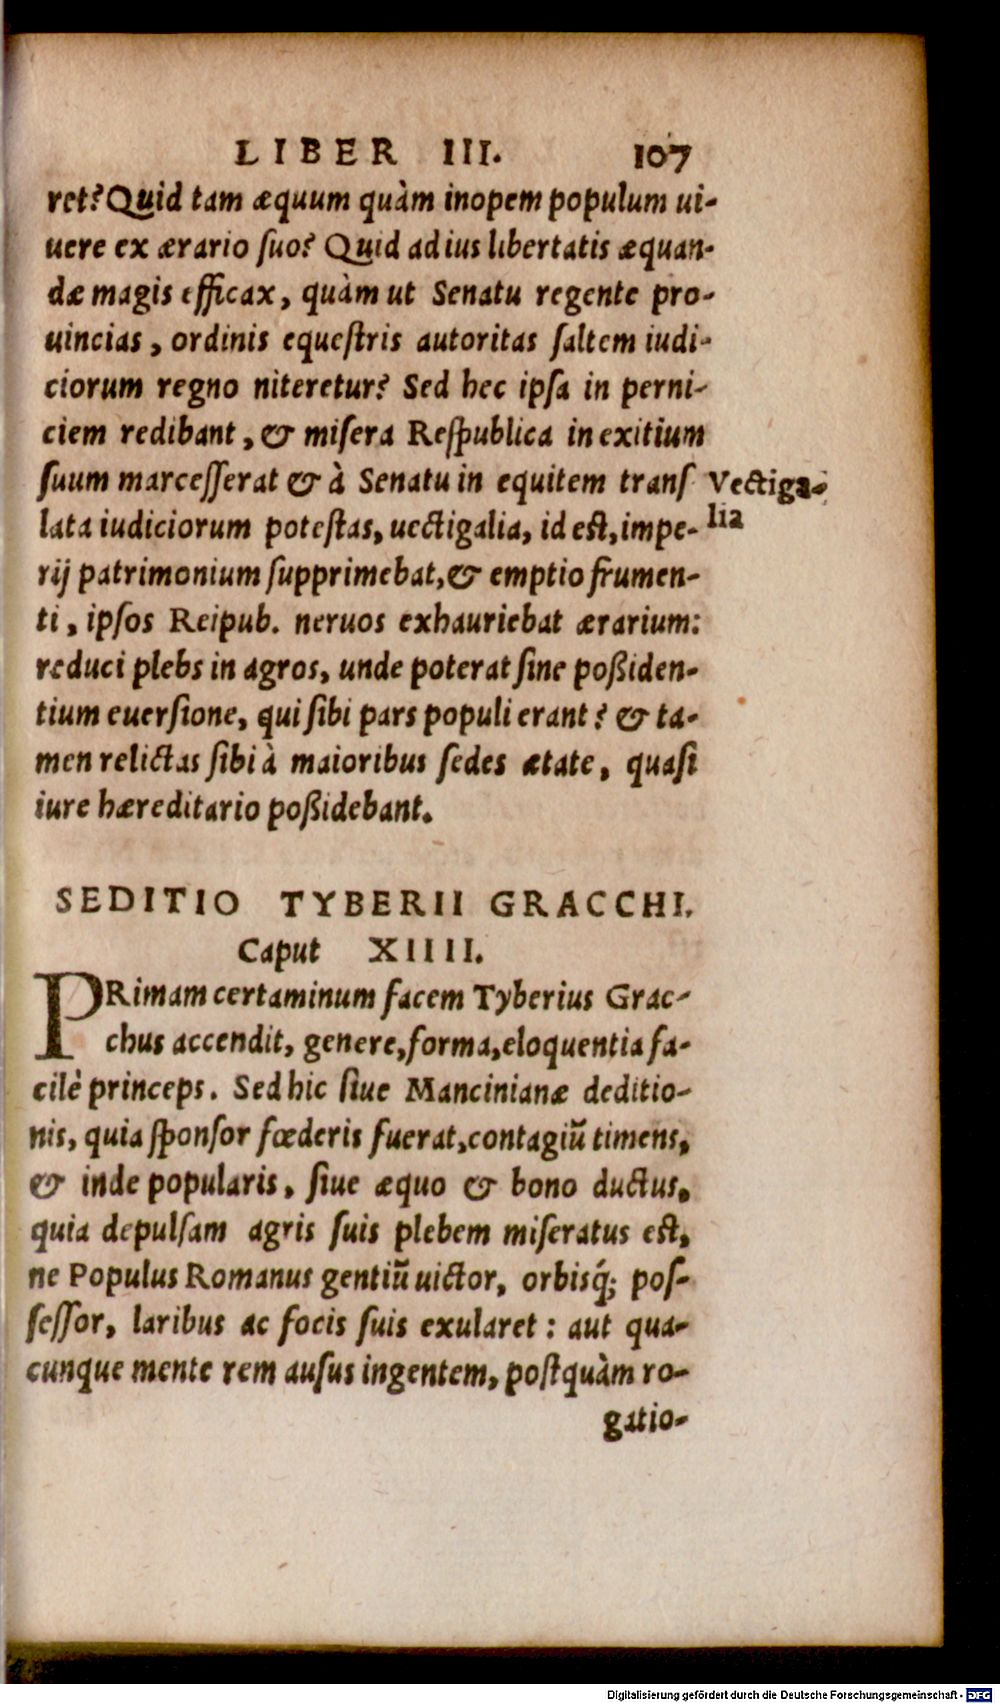 LIBER III. 107
ret? Quid tam æquum quàm inopem populum ui-
uere ex ærario ſuo? Quid ad ius libertatis æquan-
dæ magis efficax, quàm ut Senatu regente pro-
uincias, ordinis equeſtris autoritas ſaltem iudi-
ciorum regno niteretur? Sed hec ipſa in perni-
ciem redibant, & miſera Reſpublica in exitium
ſuum marceſſerat & à Senatu in equitem transſ
Vectiga-
lia
lata iudiciorum poteſtas, uectigalia, id eſt, impe-
rij patrimonium ſupprimebat, & emptio frumen-
ti, ipſos Reipub. neruos exhauriebat ærarium:
reduci plebs in agros, unde poterat ſine poßiden-
tium euerſione, qui ſibi pars populi erant? & ta-
men relictas ſibi à maioribus ſedes ætate, quaſi
iure hæreditario poßidebant.
SEDITIO TYBERII GRACCHI.
Caput XIIII.
PRimam certaminum facem Tyberius Grac-
chus accendit, genere, forma, eloquentia fa-
cilè princeps. Sed hic ſiue Mancinianæ deditio-
nis, quia ſponſor fœderis fuerat, contagiũ timens,
& inde popularis, ſiue æquo & bono ductus,
quia depulſam agris ſuis plebem miſeratus eſt,
ne Populus Romanus gentiũ uictor, orbisq́; poſ-
ſeſſor, laribus ac focis ſuis exularet: aut qua-
cunque mente rem auſus ingentem, poſtquàm ro-
gatio-
Digitalisierung gefördert durch die Deutsche Forschungsgemeinschaft - DFG